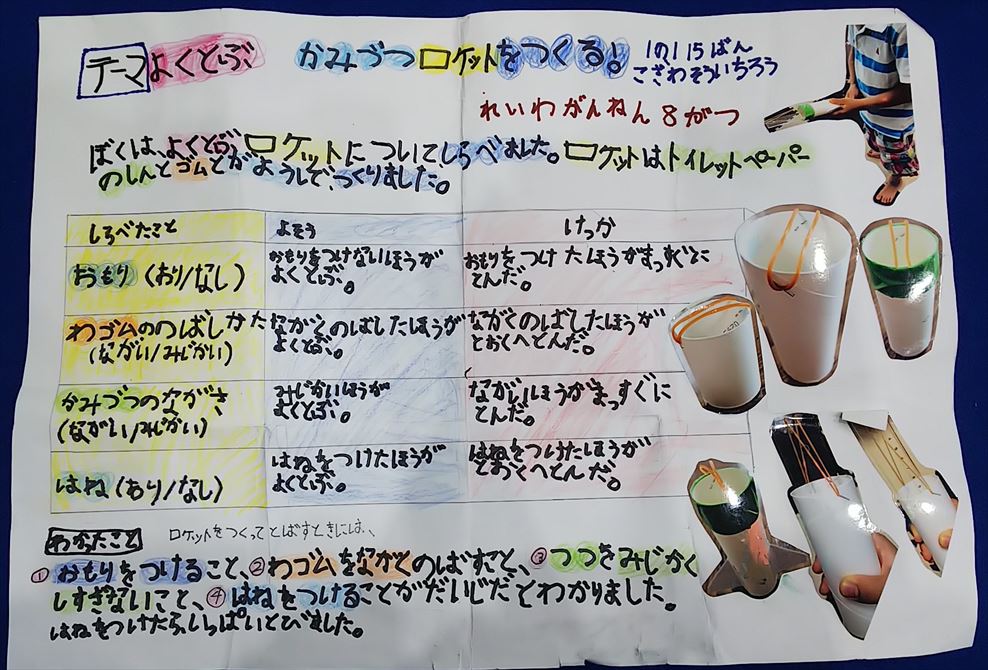 テーマ よくとぶ かみづつロケットをつくる!
1の1 15ばん
こざわそういちろう
れいわがんねん 8がつ
ぼくは、よくとぶ、ロケットについてしらべました。ロケットはトイレットペーパー
のしんとゴムとがようしで、つくりました。
しらべたこと よそう けっか
おもり (あり/なし)
おもりをつけないほうが
よくとぶ。
おもりをつけたほうがまっすぐに
とんだ。
わゴムののばしかた
(ながい/みじかい)
ながくのばしたほうが
よくとぶ。
ながくのばしたほうが
とおくへとんだ。
かみづつのながさ
(ながい/みじかい)
みじかいほうが
よくとぶ。
ながいほうがまっすぐに
とんだ。
はね (あり/なし)
はねをつけたほうが
よくとぶ。
はねをつけたほうが
とおくへとんだ。
わかったこと ロケットをつくってとばすときには、
①おもりをつけること、②わゴムをながくのばすこと、③つつをみじかく
しすぎないこと、④はねをつけることがだいじだとわかりました。
はねをつけたら、いっぱいとびました。